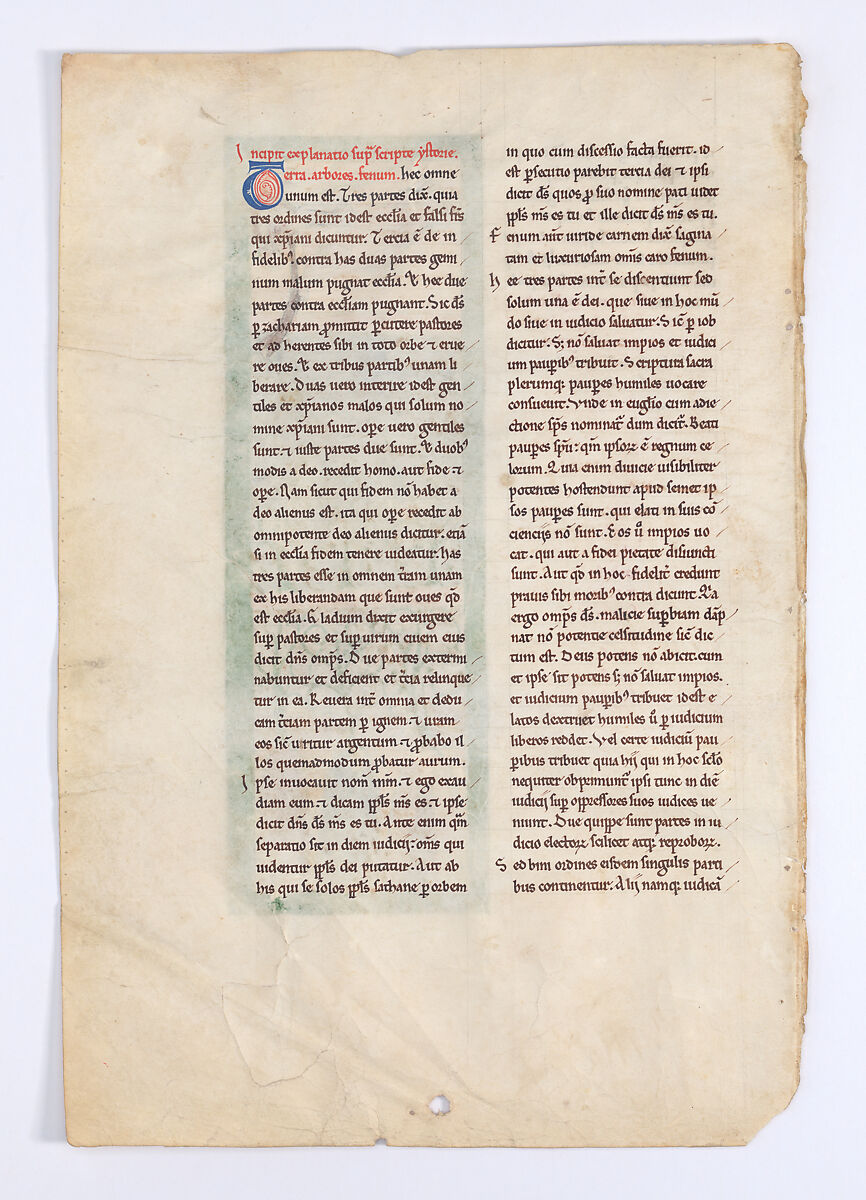 Incipit explanatio sup̄ scripte ẏstorie.
Terra. arbores. fenum. hec omne
unum est. Tres partes dix̄. quia
tres ordines sunt id est ecclīa et falsi fr̄s
qui xp̄iani dicuntur. Tercia ē de in
fidelibꝰ. contra has duas partes gemi
num malum pugnat ecclīa. Et hec due
partes contra ecclīam pugnant. Sic d̄s
ꝑ zachariam ꝓmittit ꝑcutere pastores
et ad herentes sibi in toto orbe ⁊ erue
re oues. Et ex tribus partibꝰ unam li
berare. Duas uero interire id est gen
tiles et xp̄ianos malos qui solum no
mine xp̄iani sunt. oꝑe uero gentiles
sunt. ⁊ iuste partes due sunt. Et duobꝰ
modis a deo. recedit homo. aut fide ⁊
oꝑe. Nam sicut qui fidem nō habet a
deo alienus est. ita qui oꝑe recedit ab
omnipotente deo alienus dicitur. etiā
si in ecclīa fidem tenere uideatur. has
tres partes esse in omnem t̄ram unam
ex his liberandam que sunt oues qd̄
est ecclīa. Gladium dixit exurgere
suꝑ pastores et suꝑ uirum ciuem eius
dicit dn̄s omp̄s. Due partes extermi
nabuntur et deficient et t̄cia relinque
tur in ea. Reuera int̄ omnia et dedu
cam t̄ciam partem ꝑ ignem. ⁊ uram
eos sic̄ uritur argentum. ⁊ ꝓbabo il
los quemadmodum ꝓbatur aurum.
Ipse inuocauit nom̄ mm̄. ⁊ ego exau
diam eum. ⁊ dicam ppl̄s m̄s es. ⁊ ipse
dicit dn̄s d̄s m̄s es tu. Ante enim qm̄
separatio sit in diem iudicij: om̄s qui
uidentur ppl̄s dei putatur. Aut ab
his qui se solos ppl̄s sathane ꝑ orbem
in quo cum discessio facta fuerit. id
est ꝑsecutio parebit tercia dei ⁊ ipsi
dicit d̄s quos ꝓ suo nomine pati uidet
ppl̄s m̄s es tu et ille dicit d̄s m̄s es tu.
Fenum aut̄ uiride carnem dix̄ sagina
tam et luxuriosam om̄is caro fenum.
Hee tres partes int̄ se discentiunt sed
solum una ē dei. que siue in hoc mū
do siue in iudicio saluatur. Sic̄ ꝑ iob
dicitur. S; nō saluat impios et iudici
um pauꝑibꝰ tribuit. Scriptura sacra
plerumq; pauꝑes humiles uocare
consueuit. Vnde in eugl̄io cum adie
ctione sp̄s nominat̄ dum dicit̄. Beati
pauꝑes sp̄u: qm̄ ipsoꝝ ē regnum ce
lorum. Quia enim diuicie uisibiliter
potentes hostendunt apud semet ip
sos pauꝑes sunt. qui elati in suis cō
ciencijs nō sunt. Eos ū impios uo
cat. qui aut a fidei pietate disiuncti
sunt. Aut qd̄ in hoc fidelit̄ credunt
prauis sibi moribꝰ contra dicunt. Na
ergo omp̄s d̄s. malicie suꝑbiam dāp
nat nō potentie celsitudine sic̄ dic
tum est. Deus potens nō abicit. cum
et ipse sit potens s; nō saluat impios.
et iudicium pauꝑibꝰ tribuet id est e
latos dextruet humiles ū ꝑ iudicium
liberos reddet. Vel certe iudiciū pau
ꝑibus tribuet quia hij qui in hoc sclo̅
nequiter obprimunt̄ ipsi tunc in diē
iudicij suꝑ oppressores suos iudices ue
niunt. Due quippe sunt partes in iu
dicio electoꝝ scilicet atq; reproboꝝ.
Sed bini ordines eisdem singulis parti
bus continentur. Alij namq; iudicā